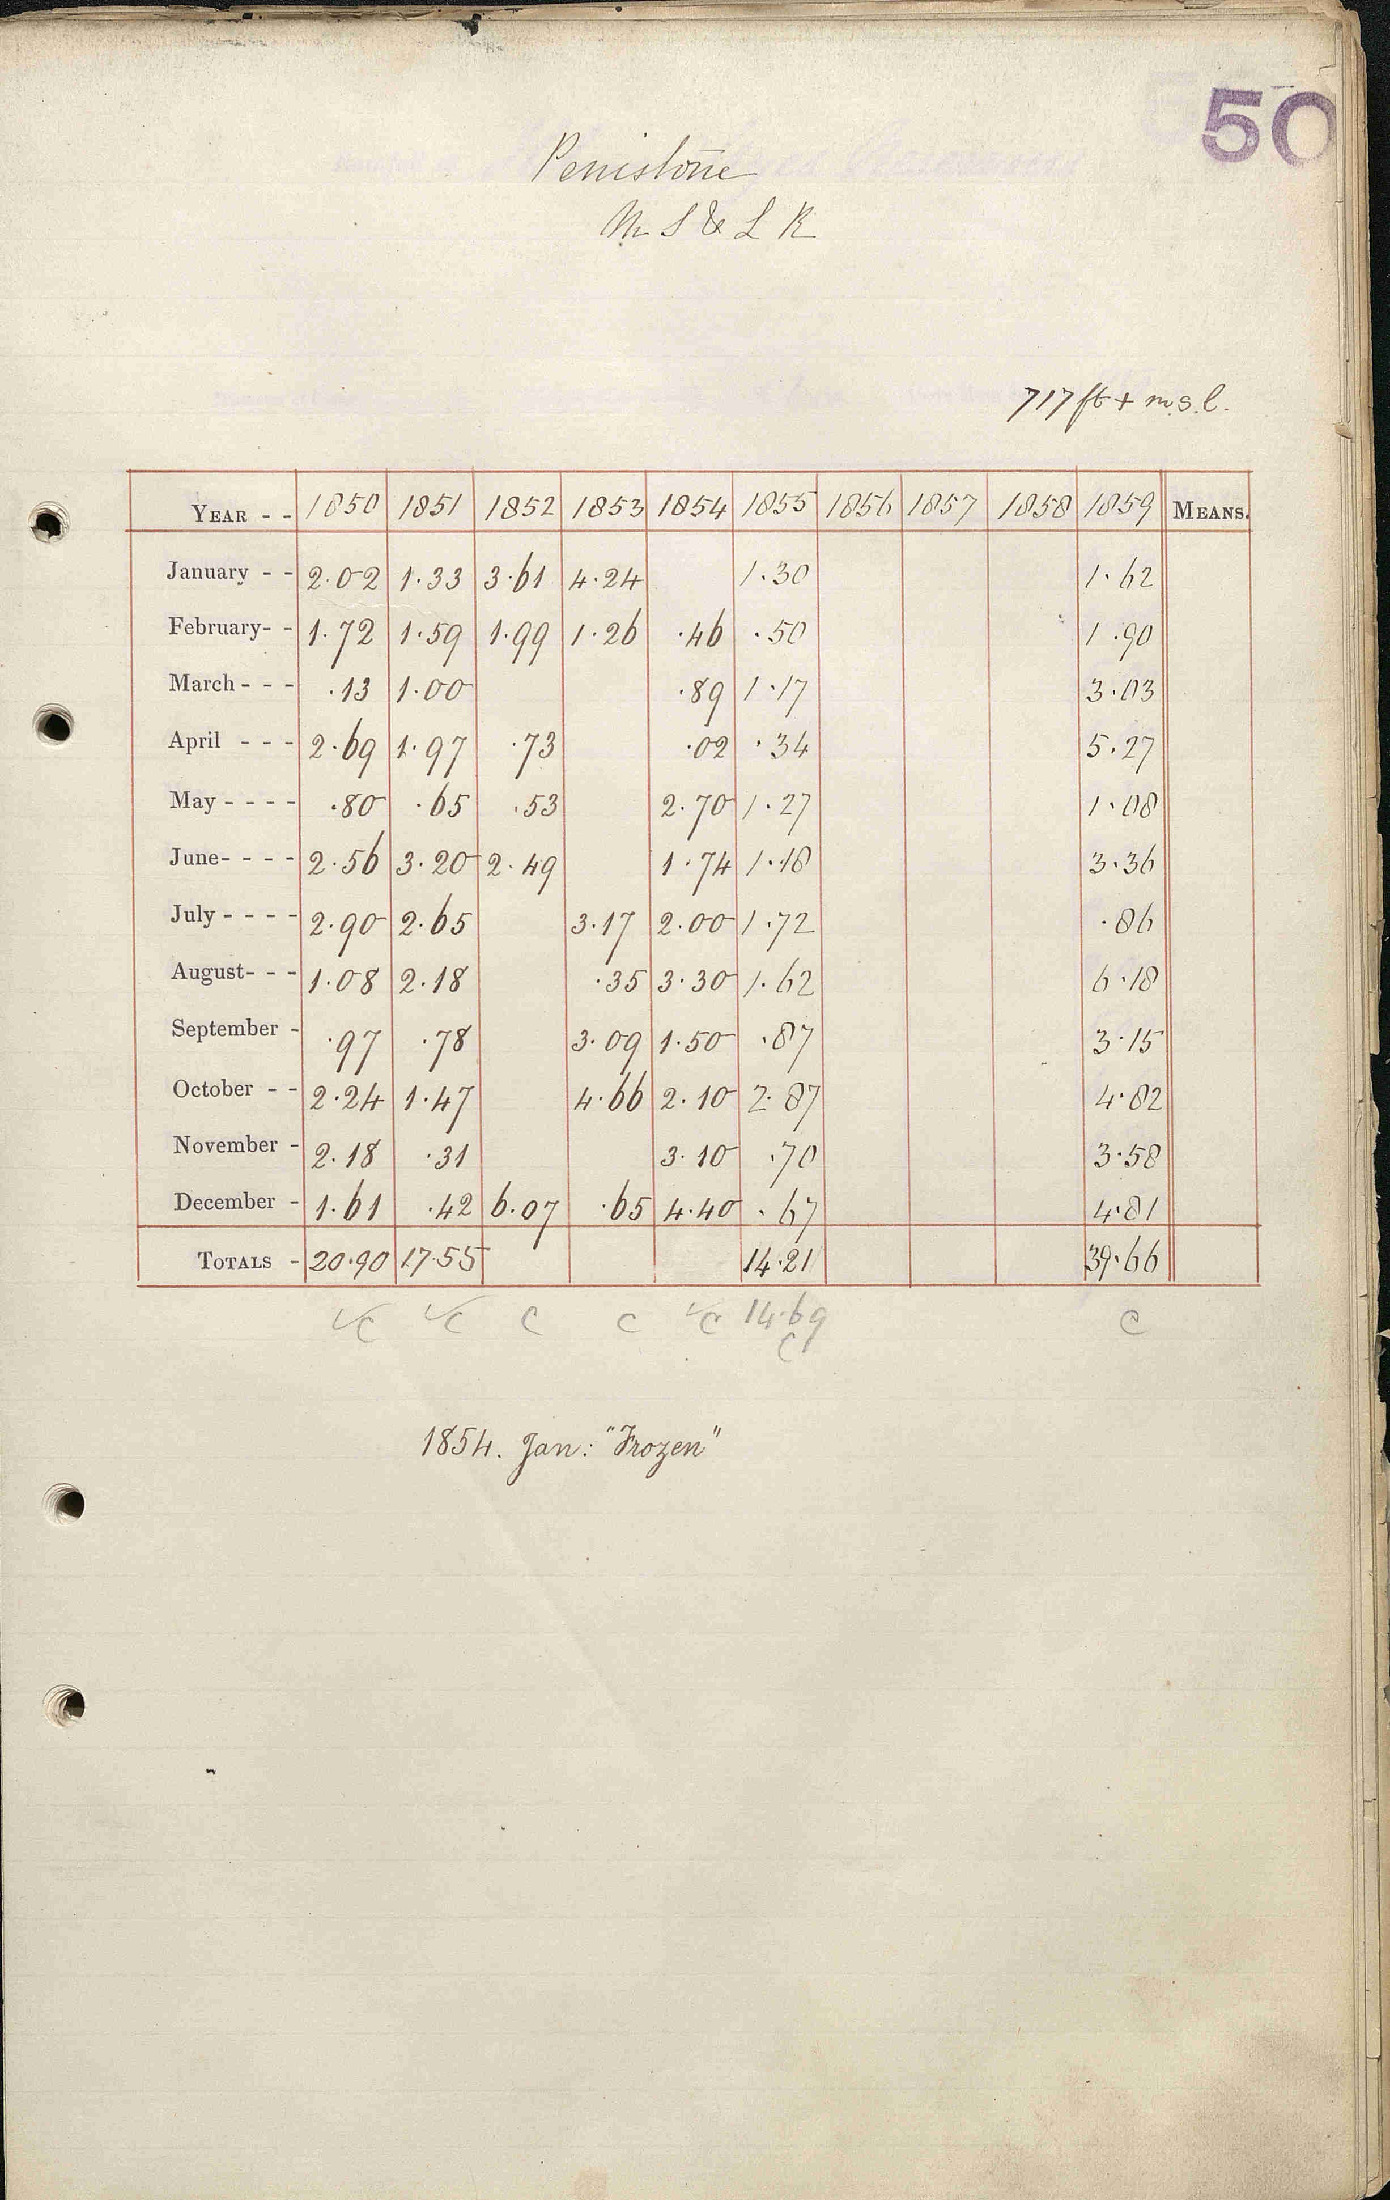 50
Penistone
M S & L R
717 ft + m.s.l.
YEAR - - 1850 1851 1852 1853 1854 1855 1856 1857 1858 1859 MEANS.
January - - 2.02 1.33 3.61 4.24 1.30 1.62
February - - 1.72 1.59 1.99 1.26 .46 .50 1.90
March - - - .13 1.00 .89 1.17 3.03
April - - - 2.69 1.97 .73 .02 .34 5.27
May - - - - .80 .65 .53 2.70 1.27 1.08
June - - - - 2.56 3.20 2.49 1.74 1.18 3.36
July - - - - 2.90 2.65 3.17 2.00 1.72 .86
August - - - 1.08 2.18 .35 3.30 1.62 6.18
September - .97 .78 3.09 1.50 .87 3.15
October - - 2.24 1.47 4.66 2.10 2.87 4.82
November - 2.18 .31 3.10 .70 3.58
December - 1.61 .42 6.07 .65 4.40 .67 4.81
TOTALS - 20.90 17.55 14.21 39.66
✓C ✓C C C ✓C 14.69 C
C
1854. Jan: "Frozen"